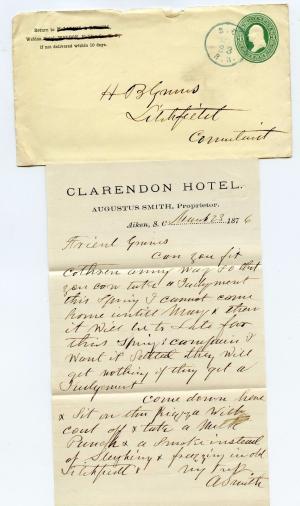 Return to
If not delivered within 10 days.
S. C.
23
H B Graves
Litchfield
Connecticut
CLARENDON HOTEL.
AUGUSTUS SMITH, Proprietor.
Aiken, S. C. March 23 1876
Friend Graves
Can you fix
any way so that
you can take a Judgment
this Spring I cannot come
home untill May & then
it will be to Late for
this Spring campain I
want it they will
get nothing if they get a
Judgment
come down here
& Sit on this Piazza With
coat off & take a Milk
Punch & a Smoke instead
of Sleighing & freezing in old
Litchfield
A Smith